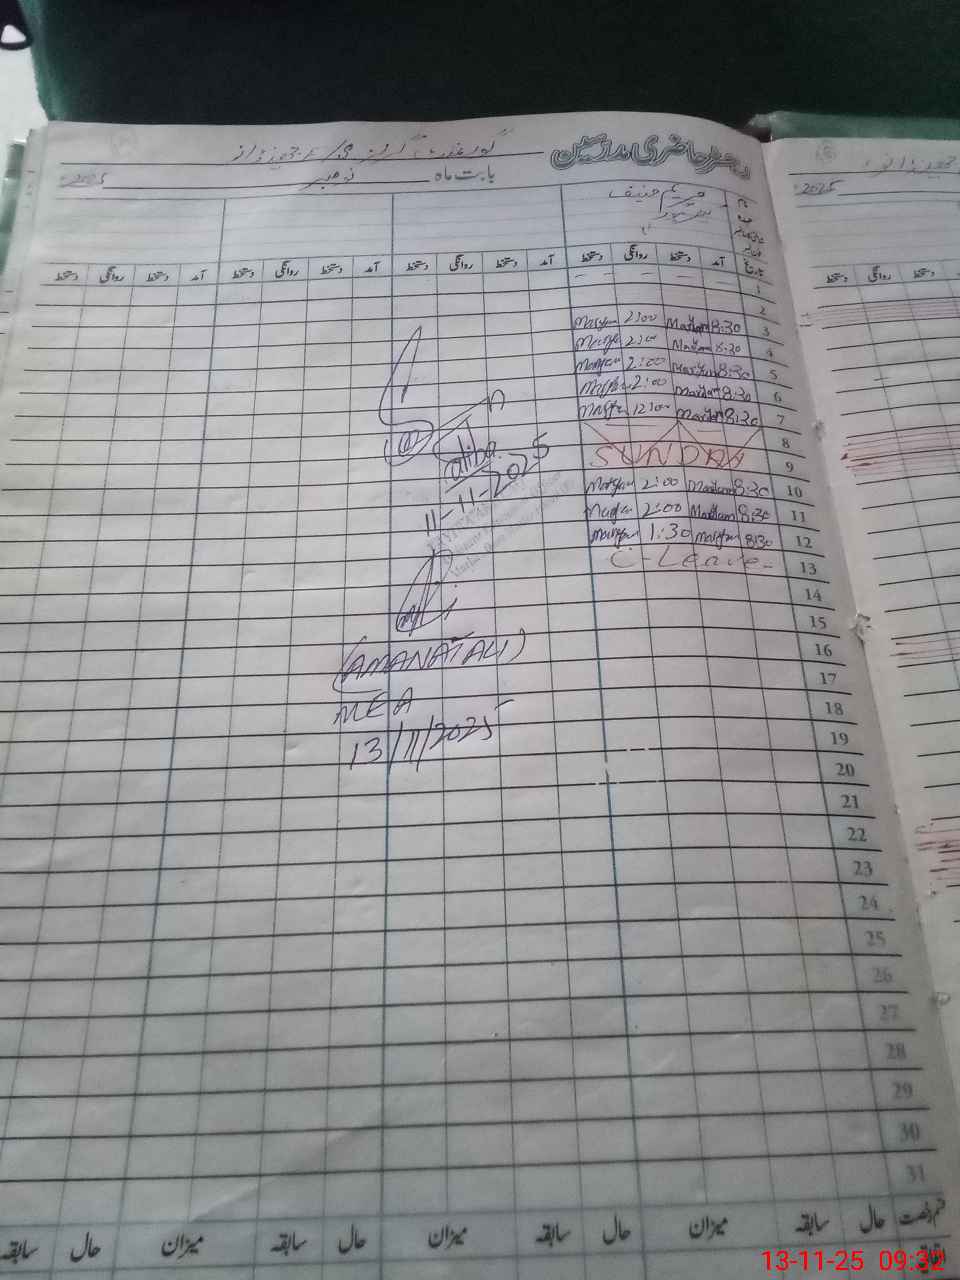 رجسٹر حاضری مدرسین
بابت ماہ نومبر 2025
مریم حنیف
تاریخ آمد دستخط روانگی دستخط آمد دستخط روانگی دستخط آمد دستخط روانگی دستخط
1
2
3 8:30 Maryam 2:00 Maryam
4 8:30 Maryam 2:00 Maryam
5 8:30 Maryam 2:00 Maryam
6 8:30 Maryam 2:00 Maryam
7 8:30 Maryam 12:00 Maryam
8
9 SUNDAY
10 8:30 Maryam 2:00 Maryam
11 8:30 Maryam 2:00 Maryam
12 8:30 Maryam 1:30 Maryam
13 C-Leave
14
15
16
17
18
19
20
21
22
23
24
25
26
27
28
29
30
31
11-11-2025
(AMANAT ALI)
MEA
13/11/2025
قسم رخصت حال سابقہ میزان حال سابقہ میزان حال سابقہ میزان حال سابقہ
اتفاقیہ
2025
دستخط روانگی دستخط
13-11-25 09:32